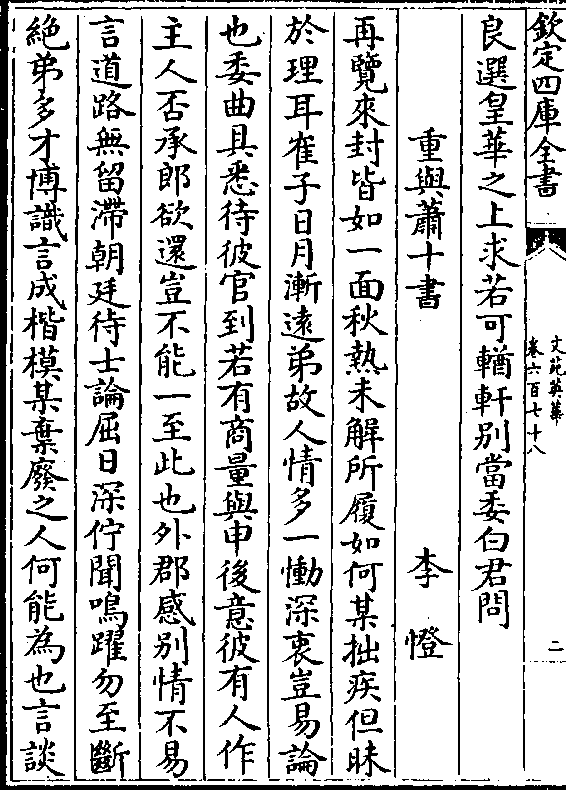 欽定四庫全書
文苑英華
卷六百七十八
二
良選皇華之上求若可輶軒別當委白君問
重與蕭十書 李憕
再覽來封皆如一面秋熱未解所履如何某拙疾但昧
於理耳崔子日月漸遠弟故人情多一慟深衷豈易論
也委曲具悉待彼官到若有商量與申後意彼有人作
主人否承郎欲還豈不能一至此也外郡感別情不易
言道路無留滯朝廷待士論屈日深佇聞鳴躍勿至斷
絶弟多才博識言成楷模某棄廢之人何能為也言談